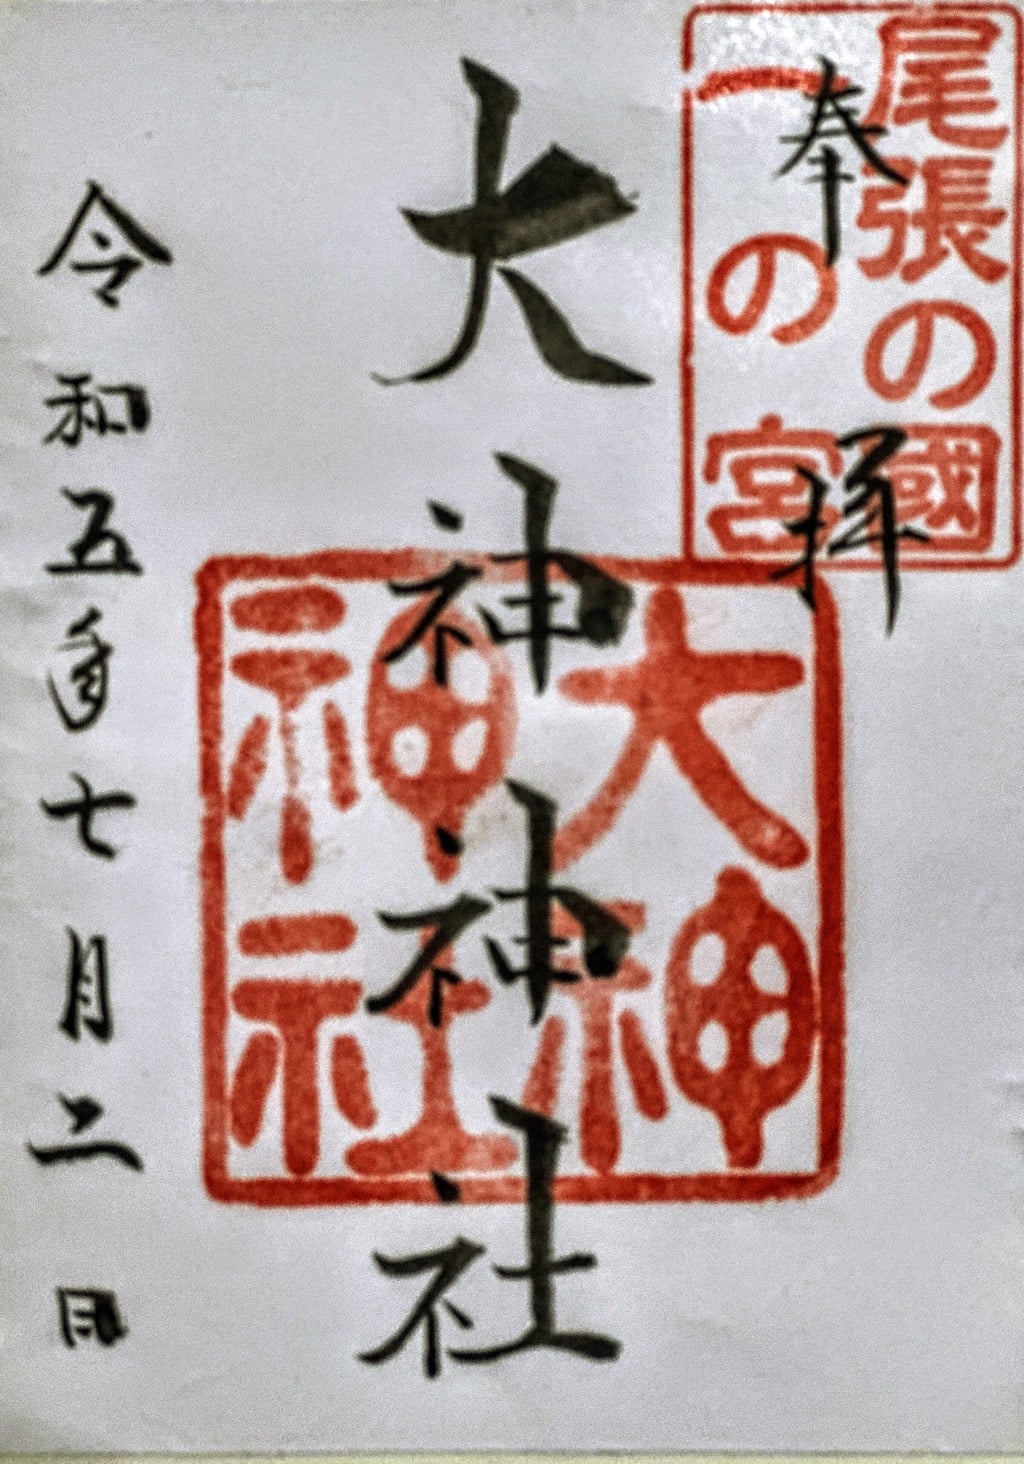 奉拝
尾張の國
一の宮
大神神社
大神
神社
令和五年七月二日